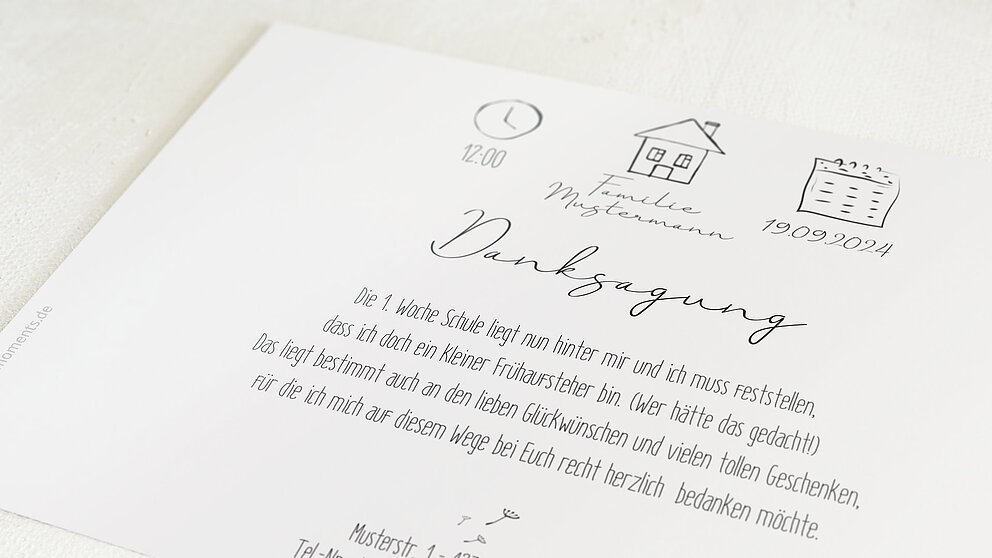 12:00
Familie
Mustermann
19.09.2024
Danksagung
Die 1. Woche Schule liegt nun hinter mir und ich muss feststellen,
dass ich doch ein kleiner Frühaufsteher bin. (Wer hätte das gedacht!)
Das liegt bestimmt auch an den lieben Glückwünschen und vielen tollen Geschenken,
für die ich mich auf diesem Wege bei Euch recht herzlich bedanken möchte.
Musterstr. 1 -
moments.de